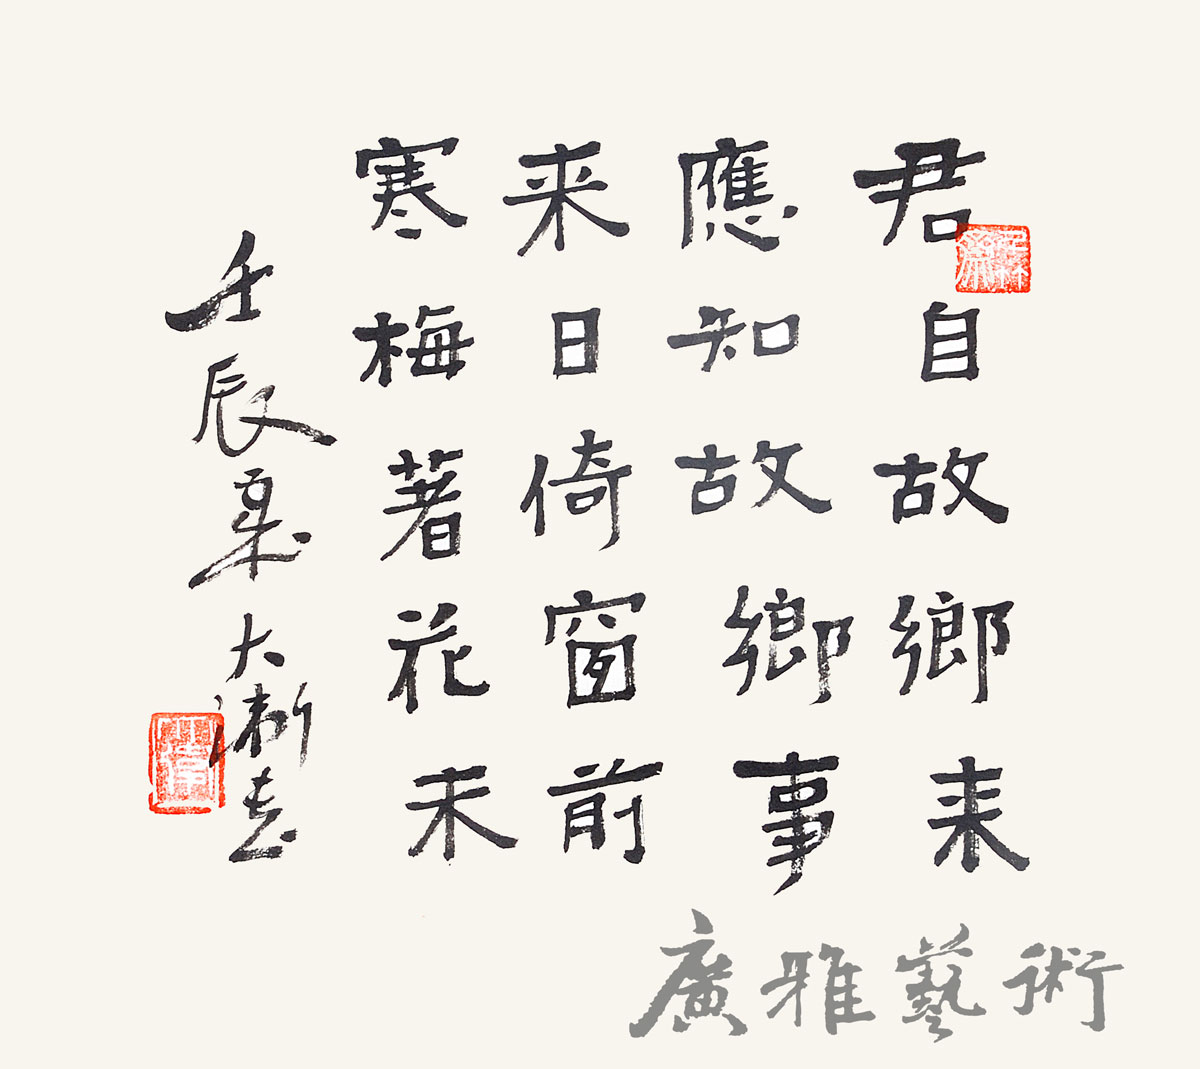 君自故鄉来
應知故鄉事
来日倚窗前
寒梅著花未
壬辰夏大漸書
廣雅藝術